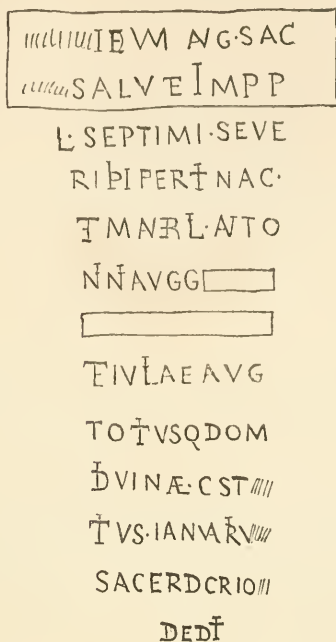 IEVM ANG·SAC
SALVTE IMPP
L·SEPTIMI·SEVE
RI PII PERTINAC·
ET MNRL·ANTO
NINAVGG
ETIVLAE AVG
TOTIVSQDOM
DIVINAE·CST
TIVS·IANVARIV
SACERDCRIO
DEDIT